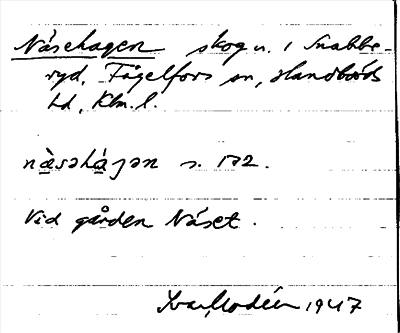 Näsehagen skog n. i Snabbe-
ryd, Fågelfors sn, Handbörds
hd, Klm. l.
nàsəhágən s. 172.
Vid gården Näset.
Ivar Modéer 1947